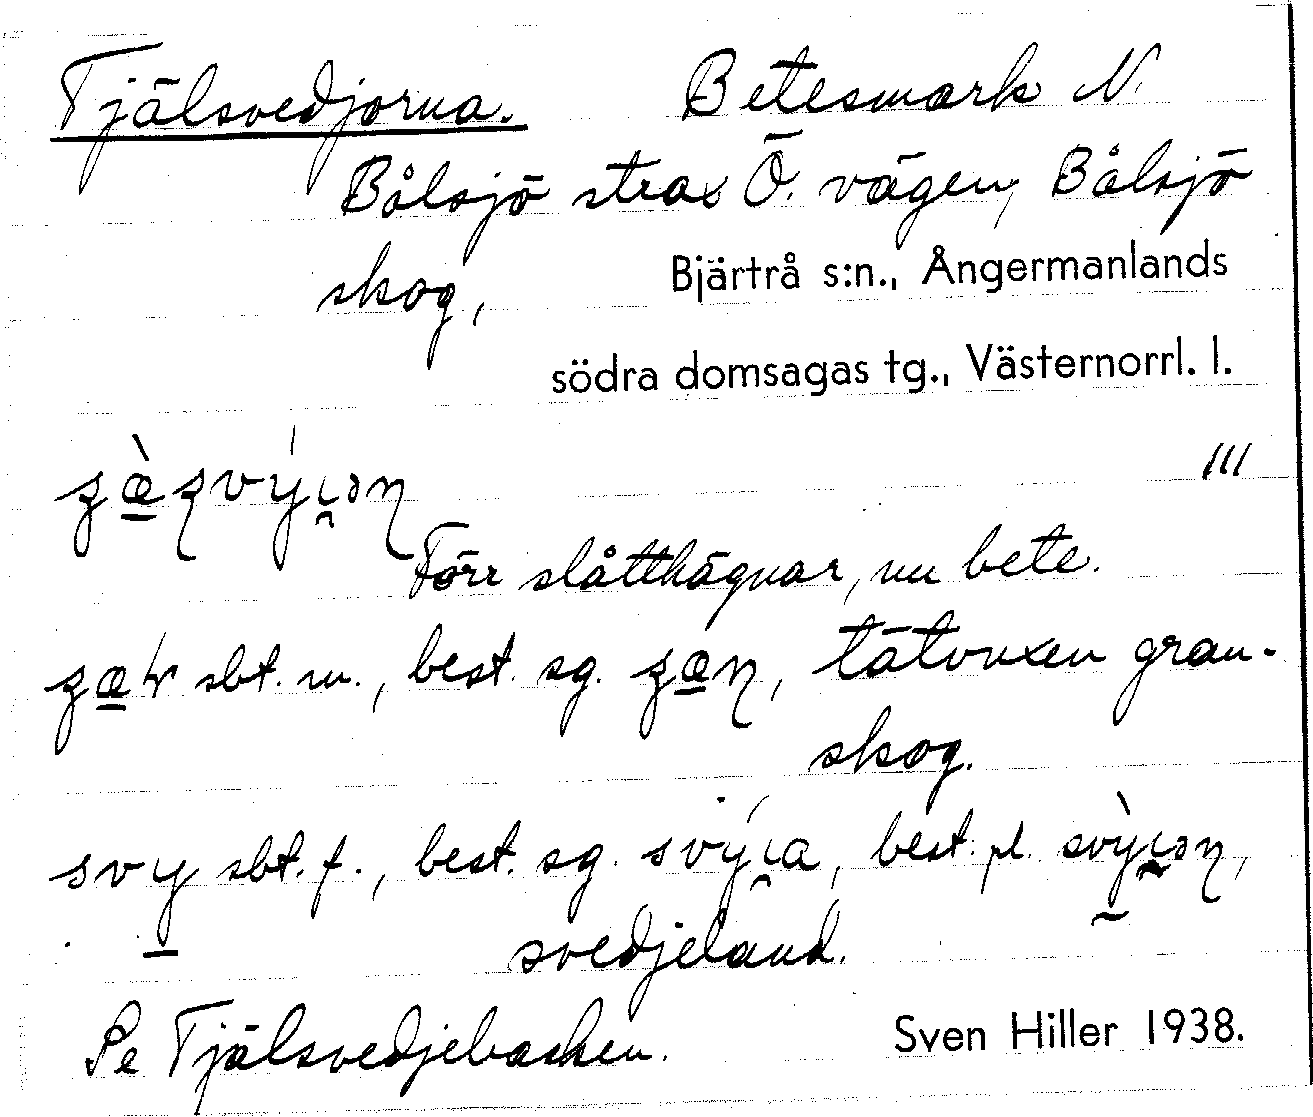 Tjälsvedjorna. Betesmark N.
Bålsjö strax Ö. vägen, Bålsjö
skog, Bjärtrå s:n., Ångermanlands
södra domsagas tg., Västernorrl. l.
III
Förr slåtthägnar, nu bete.
sbt. m., best. sg. tätvuxen gran-
skog.
svy sbt. f., best. sg. best. pl.
svedjeland.
Se Tjälsvedjebacken. Sven Hiller 1938.